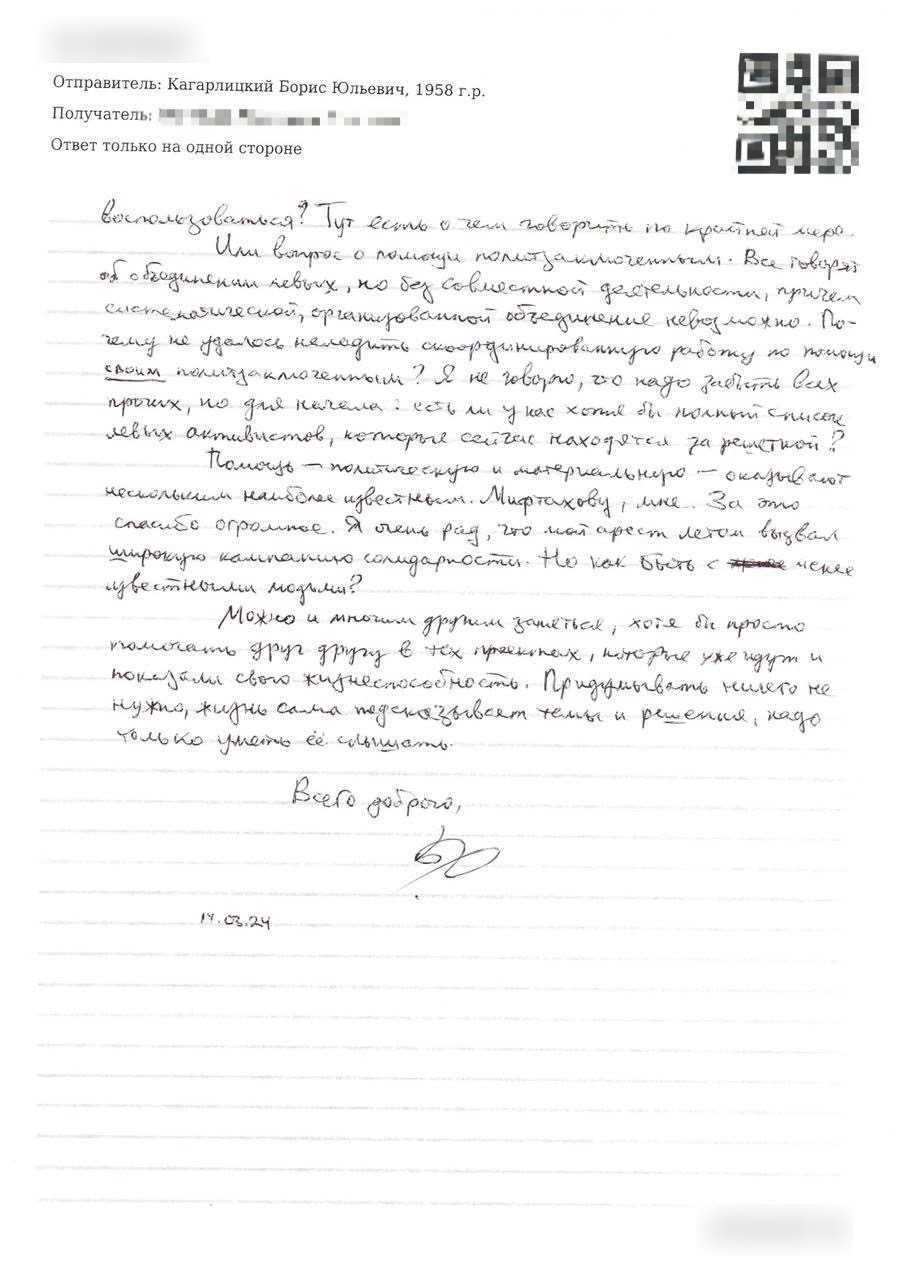 Отправитель: Кагарлицкий Борис Юльевич, 1958 г.р.
Получатель:
Ответ только на одной стороне
воспользоваться? Тут есть о чем говорить по крайней мере.
Или вопрос о помощи политзаключенным. Все говорят
об объединении левых, но без совместной деятельности, причем
систематической, организованной объединение невозможно. По-
чему не удалось наладить скоординированную работу по помощи
своим политзаключенным? Я не говорю, что надо забыть всех
прочих, но для начала: есть ли у нас хотя бы полный список
левых активистов, которые сейчас находятся за решеткой?
Помощь — политическую и материальную — оказывают
нескольким наиболее известным. Мифтахову, мне. За это
спасибо огромное. Я очень рад, что мой арест летом вызвал
широкую кампанию солидарности. Но как быть с менее
известными людьми?
Можно и многим другим заняться, хотя бы просто
помогать друг другу в тех проектах, которые уже идут и
показали свою жизнеспособность. Придумывать ничего не
нужно, жизнь сама подсказывает темы и решения, надо
только уметь её слышать.
Всего доброго,
14.03.24